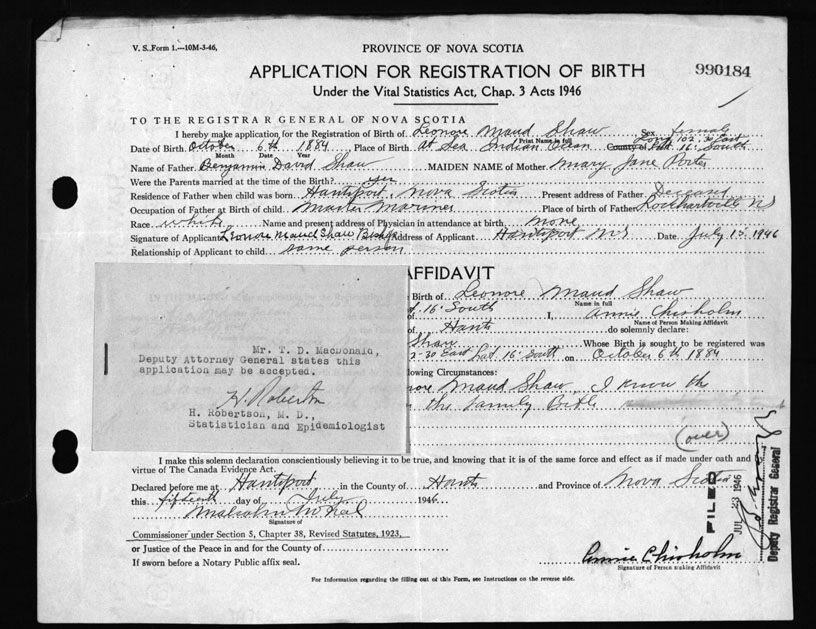 V. S. Form 1.—10M-3-46.
PROVINCE OF NOVA SCOTIA
990184
APPLICATION FOR REGISTRATION OF BIRTH
Under the Vital Statistics Act, Chap. 3 Acts 1946
TO THE REGISTRAR GENERAL OF NOVA SCOTIA
I hereby make application for the Registration of Birth of Leonore Maud Shaw Sex female
Print Name in full
Long 102.30 East
Date of Birth October 6th 1884 Place of Birth at Sea Indian Ocean County of Lat. 16° South
Month Date Year
Name of Father Benjamin David Shaw MAIDEN NAME of Mother Mary Jane Porter
Were the Parents married at the time of the Birth? yes
Residence of Father when child was born Hantsport, Nova Scotia Present address of Father Deceased
Occupation of Father at Birth of child Master Mariner Place of birth of Father Lockhartville NS
Race white Name and present address of Physician in attendance at birth none
Signature of Applicant Leonore Maud Shaw Bishop Address of Applicant Hantsport NS Date July 15 1946
Relationship of Applicant to child same person
AFFIDAVIT
Birth of Leonore Maud Shaw
Name in full
16° South I, Annie Chisholm
Name of Person Making Affidavit
of Hants do solemnly declare:
Shaw Whose Birth is sought to be registered was
2-30 East Lat. 16° South on October 6th 1884
lowing Circumstances:
ore Maud Shaw, I know the
the family Bible
(over)
Mr. T. D. MacDonald,
Deputy Attorney General states this
application may be accepted.
H. Roberton
H. Robertson, M. D.,
Statistician and Epidemiologist
I make this solemn declaration conscientiously believing it to be true, and knowing that it is of the same force and effect as if made under oath and by
virtue of The Canada Evidence Act.
Declared before me at Hantsport in the County of Hants and Province of Nova Scotia
this fifteenth day of July 1946.
Malcolm McNeil
Signature of
Commissioner under Section 5, Chapter 38, Revised Statutes, 1923,
or Justice of the Peace in and for the County of
If sworn before a Notary Public affix seal.
Annie Chisholm
Signature of Person Making Affidavit
For Information regarding the filling out of this Form, see Instructions on the reverse side.
FILED
JUL 23 1946
Deputy Registrar General